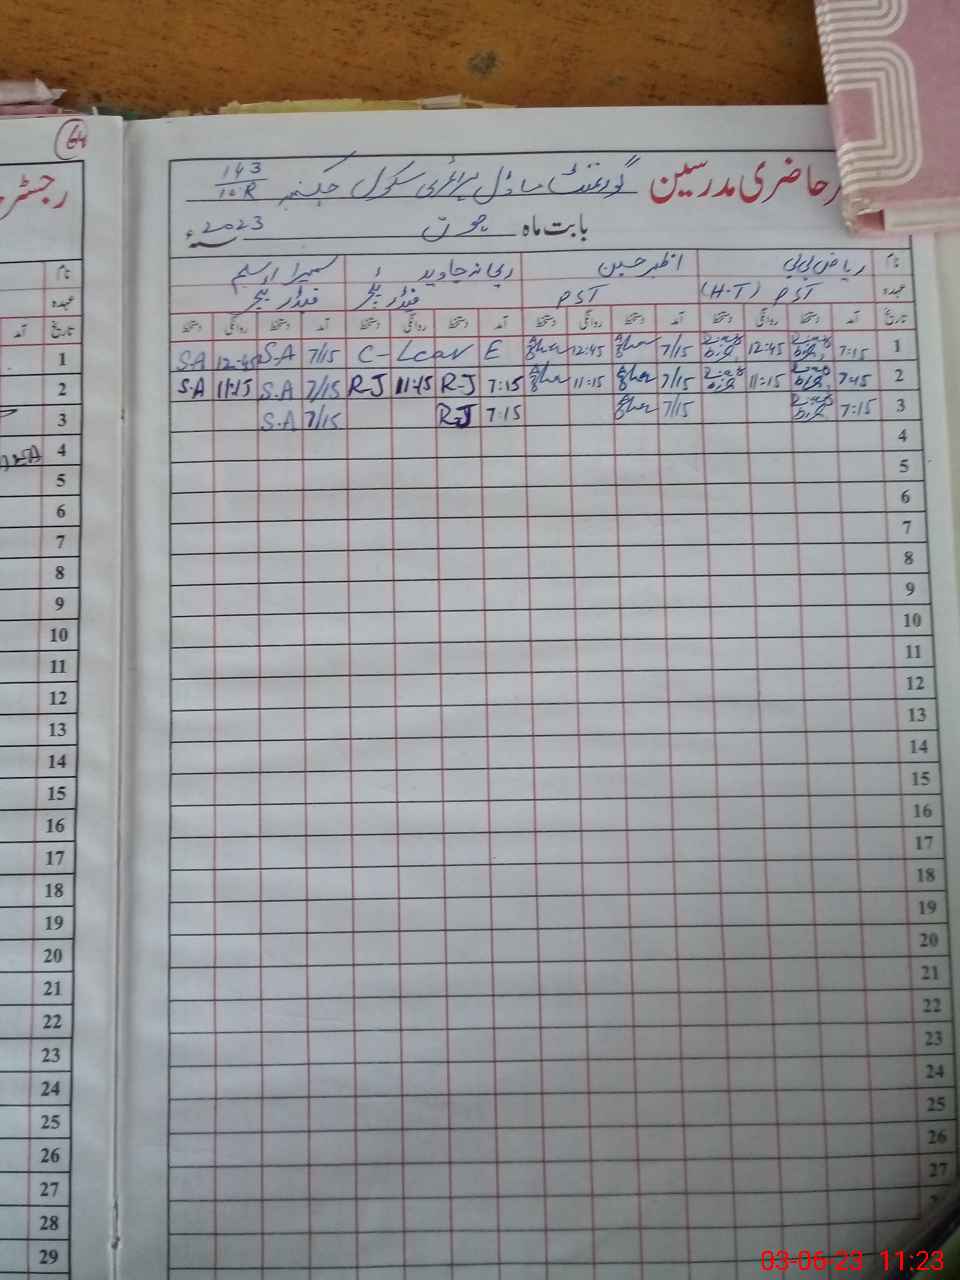 64
رجسٹر
رحاضری مدرسین گورنمنٹ ماڈل پرائمری سکول چک نمبر 143/10R
بابت ماہ جون 2023ء
نام ریاض بی بی اظہر حسین ریحانہ جاوید سمیرا ارسلم
عہدہ PST (H-T) PST
تاریخ آمد دستخط روانگی دستخط آمد دستخط روانگی دستخط آمد دستخط روانگی دستخط آمد دستخط روانگی دستخط
1 7:15 12:45 7/15 Azher 12:45 Azher C-Leave 7/15 S.A 12:45 S.A
2 7:15 11:15 7/15 Azher 11:15 Azher 7:15 R-J 11:15 R-J 7/15 S.A 11:15 S.A
3 7:15 7/15 Azher 7:15 R-J 7/15 S.A
4
5
6
7
8
9
10
11
12
13
14
15
16
17
18
19
20
21
22
23
24
25
26
27
نام
عہدہ
تاریخ آمد
1
2
3
4
5
6
7
8
9
10
11
12
13
14
15
16
17
18
19
20
21
22
23
24
25
26
27
28
29
03-06-23 11:23